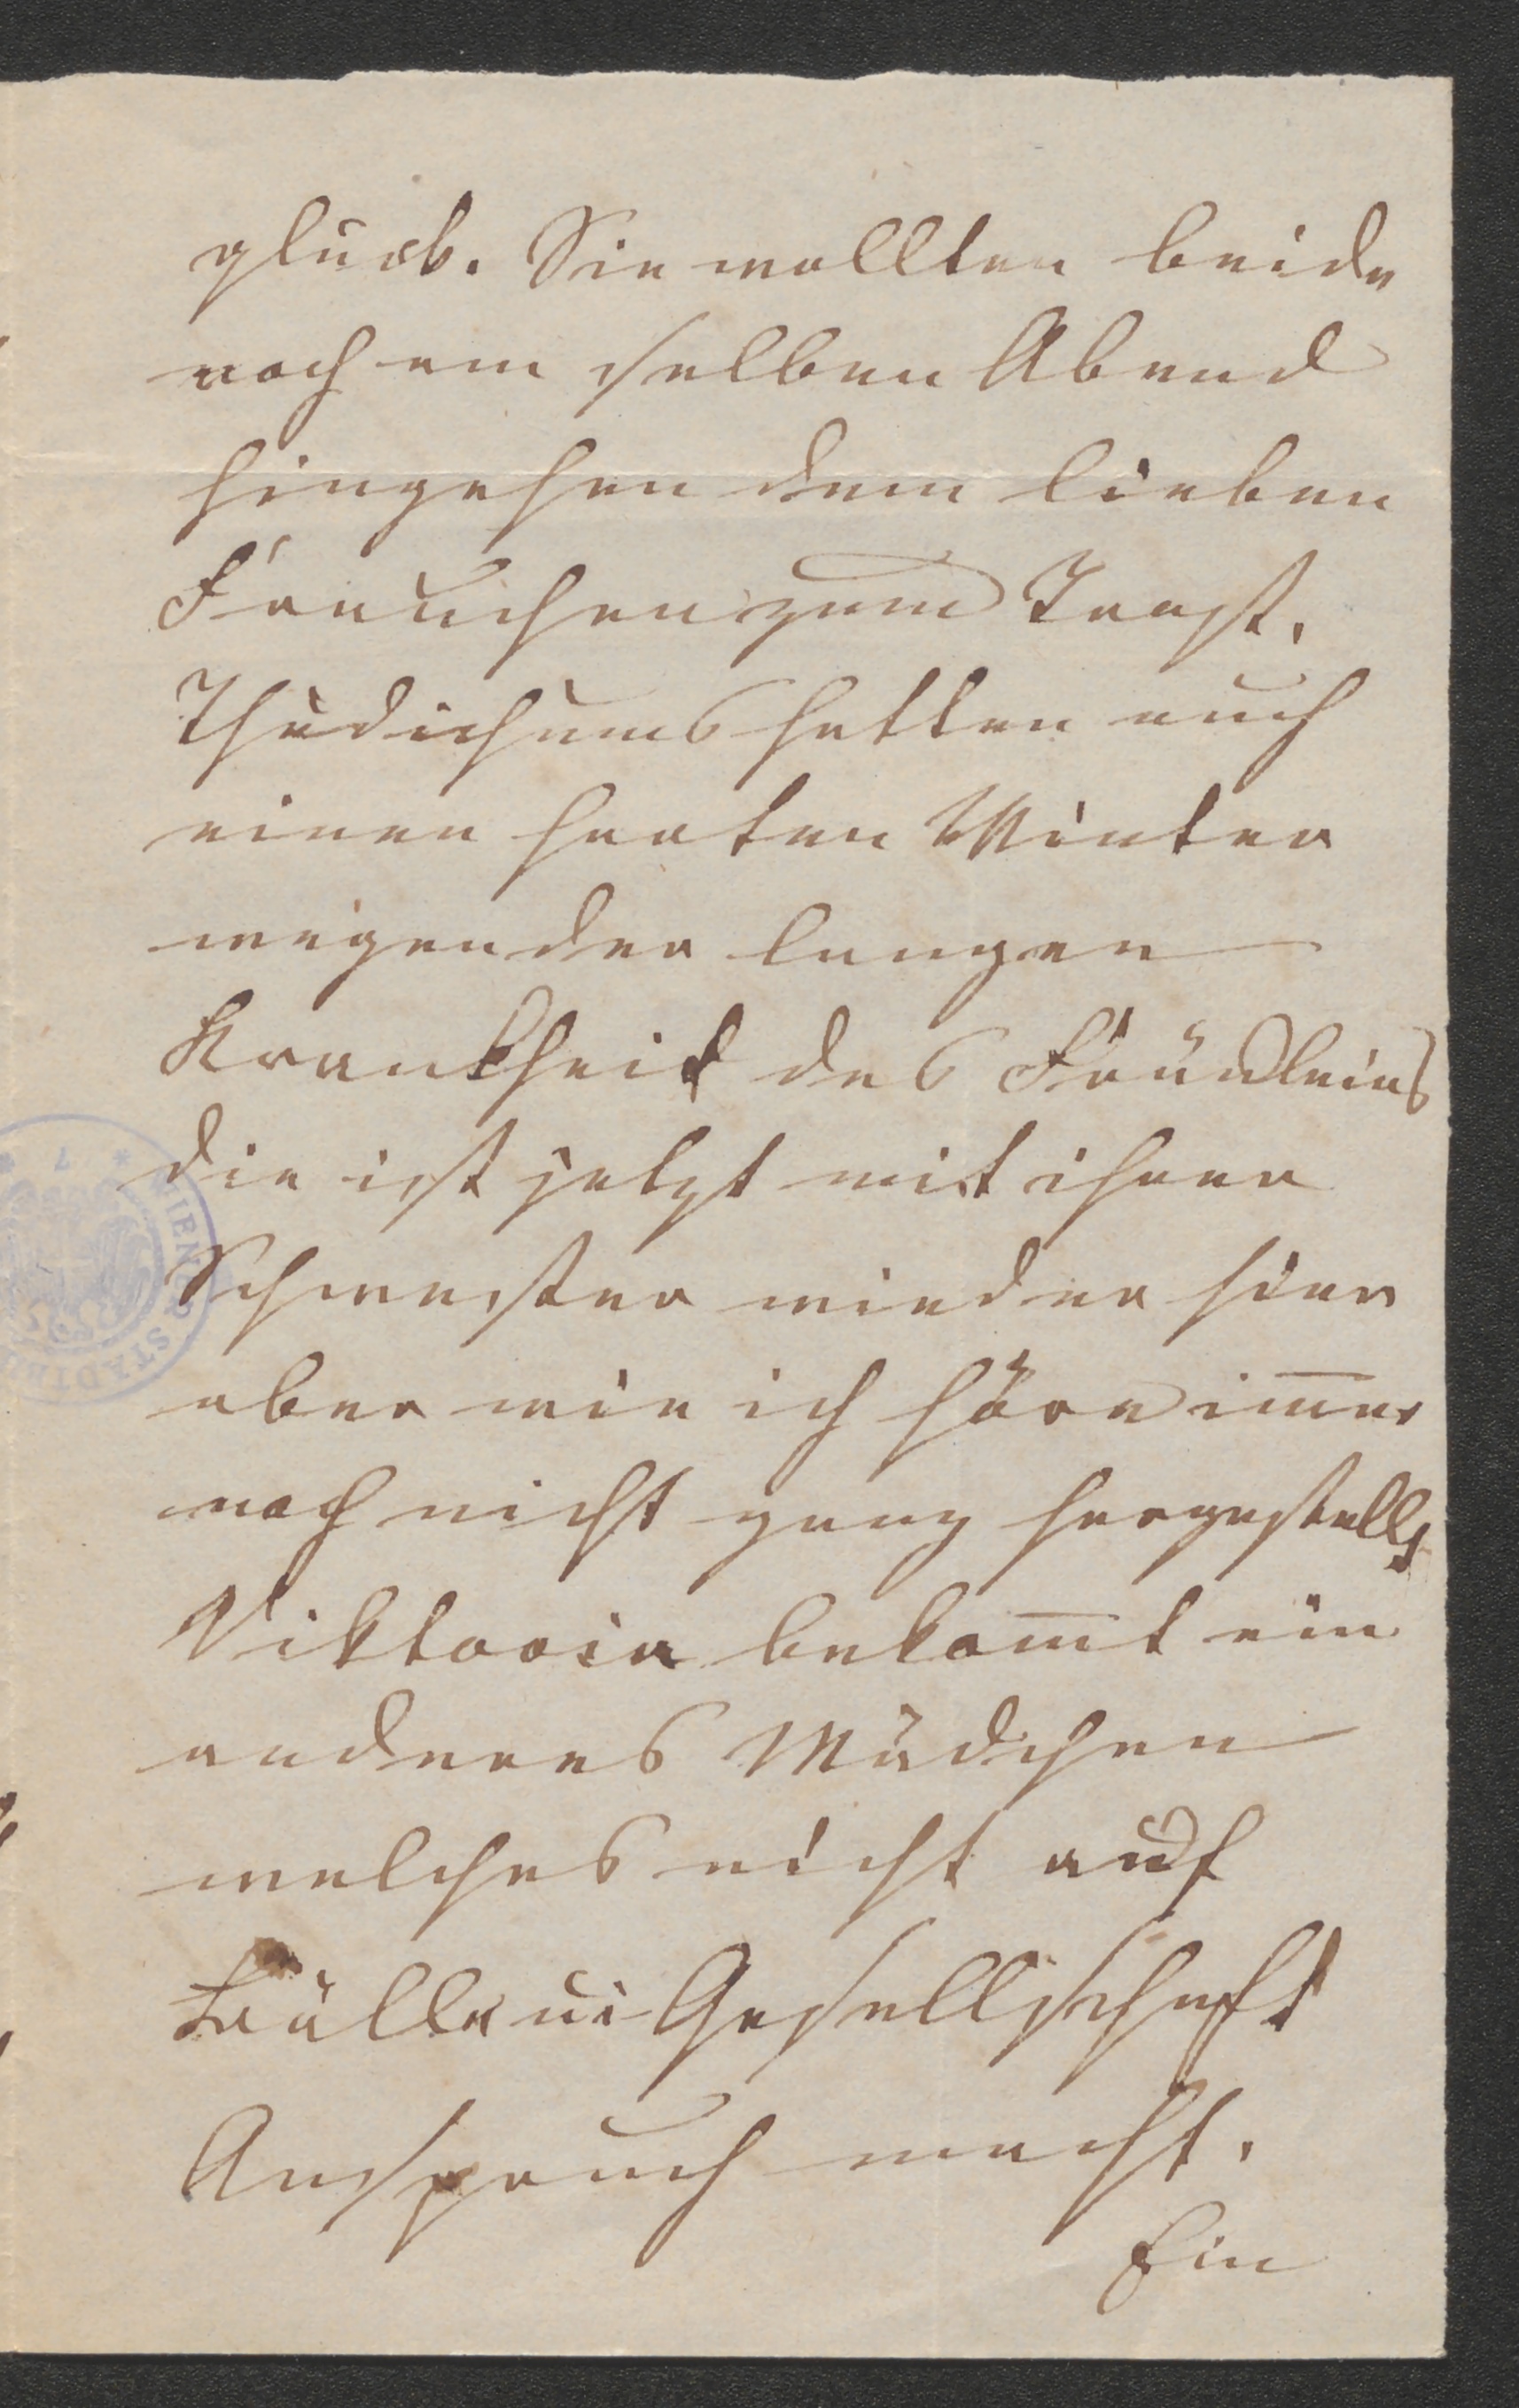 glück. Sie wollten beide
noch am selben Abend
hingehen dem lieben
Frauchen zum Trost.
Thudichums hatten auch
einen harten Winter
wegen der langen
Krankheit des Fräuleins
die ist jetzt mit ihrer
Schwester wieder hier
aber wie ich höre im̄er
noch nicht ganz hergestellt
Viktoria bekom̄t ein
anderes Mädchen
welches nicht auf
Bälle u Gesellschaft
Anspruch macht.
Ein